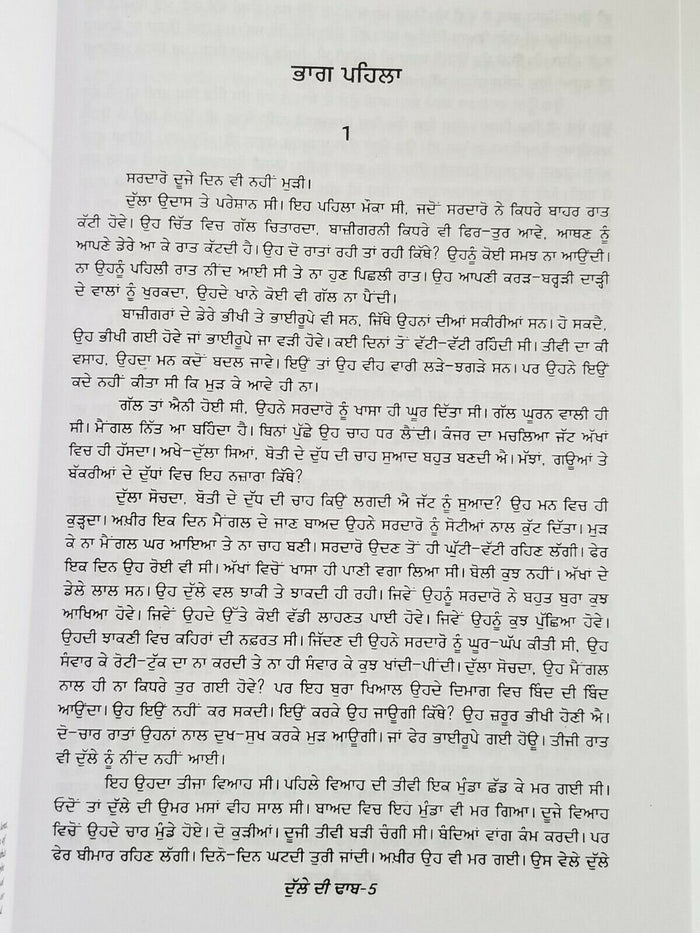 ਭਾਗ ਪਹਿਲਾ
1
ਸਰਦਾਰੋ ਦੂਜੇ ਦਿਨ ਵੀ ਨਹੀਂ ਮੁੜੀ।
ਦੁੱਲਾ ਉਦਾਸ ਤੇ ਪਰੇਸ਼ਾਨ ਸੀ। ਇਹ ਪਹਿਲਾ ਮੌਕਾ ਸੀ, ਜਦੋਂ ਸਰਦਾਰੋ ਨੇ ਕਿਧਰੇ ਬਾਹਰ ਰਾਤ
ਕੱਟੀ ਹੋਵੇ। ਉਹ ਚਿੱਤ ਵਿਚ ਗੱਲ ਚਿਤਾਰਦਾ, ਬਾਜ਼ੀਗਰਨੀ ਕਿਧਰੇ ਵੀ ਫਿਰ-ਤੁਰ ਆਵੇ, ਆਥਣ ਨੂੰ
ਆਪਣੇ ਡੇਰੇ ਆ ਕੇ ਰਾਤ ਕੱਟਦੀ ਹੈ। ਉਹ ਦੋ ਰਾਤਾਂ ਰਹੀ ਤਾਂ ਰਹੀ ਕਿੱਥੇ? ਉਹਨੂੰ ਕੋਈ ਸਮਝ ਨਾ ਆਉਂਦੀ।
ਨਾ ਉਹਨੂੰ ਪਹਿਲੀ ਰਾਤ ਨੀਂਦ ਆਈ ਸੀ ਤੇ ਨਾ ਹੁਣ ਪਿਛਲੀ ਰਾਤ। ਉਹ ਆਪਣੀ ਕਰੜ-ਬਰੜੀ ਦਾੜ੍ਹੀ
ਦੇ ਵਾਲਾਂ ਨੂੰ ਖੁਰਕਦਾ, ਉਹਦੇ ਖਾਨੇ ਕੋਈ ਵੀ ਗੱਲ ਨਾ ਪੈਂਦੀ।
ਬਾਜ਼ੀਗਰਾਂ ਦੇ ਡੇਰੇ ਭੀਖੀ ਤੇ ਭਾਈਰੂਪੇ ਵੀ ਸਨ, ਜਿੱਥੇ ਉਹਨਾਂ ਦੀਆਂ ਸਕੀਰੀਆਂ ਸਨ। ਹੋ ਸਕਦੈ,
ਉਹ ਭੀਖੀ ਗਈ ਹੋਵੇ ਜਾਂ ਭਾਈਰੂਪੇ ਜਾ ਵੜੀ ਹੋਵੇ। ਕਈ ਦਿਨਾਂ ਤੋਂ ਵੱਟੀ-ਵੱਟੀ ਰਹਿੰਦੀ ਸੀ। ਤੀਵੀਂ ਦਾ ਕੀ
ਵਸਾਹ, ਉਹਦਾ ਮਨ ਕਦੋਂ ਬਦਲ ਜਾਵੇ। ਇਉਂ ਤਾਂ ਉਹ ਵੀਹ ਵਾਰੀ ਲੜੇ-ਝਗੜੇ ਸਨ। ਪਰ ਉਹਨੇ ਇਉਂ
ਕਦੇ ਨਹੀਂ ਕੀਤਾ ਸੀ ਕਿ ਮੁੜ ਕੇ ਆਵੇ ਹੀ ਨਾ।
ਗੱਲ ਤਾਂ ਐਨੀ ਹੋਈ ਸੀ, ਉਹਨੇ ਸਰਦਾਰੋ ਨੂੰ ਖਾਸਾ ਹੀ ਘੂਰ ਦਿੱਤਾ ਸੀ। ਗੱਲ ਘੂਰਨ ਵਾਲੀ ਹੀ
ਸੀ। ਮੈਂਗਲ ਨਿੱਤ ਆ ਬਹਿੰਦਾ ਹੈ। ਬਿਨਾਂ ਪੁੱਛੇ ਉਹ ਚਾਹ ਧਰ ਲੈਂਦੀ। ਕੰਜਰ ਦਾ ਮਚਲਿਆ ਜੱਟ ਅੱਖਾਂ
ਵਿਚ ਹੀ ਹੱਸਦਾ। ਅਖੇ-ਦੁੱਲਾ ਸਿਆਂ, ਬੋਤੀ ਦੇ ਦੁੱਧ ਦੀ ਚਾਹ ਸੁਆਦ ਬਹੁਤ ਬਣਦੀ ਐ। ਮੱਝਾਂ, ਗਊਆਂ ਤੇ
ਬੱਕਰੀਆਂ ਦੇ ਦੁੱਧਾਂ ਵਿਚ ਇਹ ਨਜ਼ਾਰਾ ਕਿੱਥੇ?
ਦੁੱਲਾ ਸੋਚਦਾ, ਬੋਤੀ ਦੇ ਦੁੱਧ ਦੀ ਚਾਹ ਕਿਉਂ ਲਗਦੀ ਐ ਜੱਟ ਨੂੰ ਸੁਆਦ? ਉਹ ਮਨ ਵਿਚ ਹੀ
ਕੁੜ੍ਹਦਾ। ਅਖ਼ੀਰ ਇਕ ਦਿਨ ਮੈਂਗਲ ਦੇ ਜਾਣ ਬਾਅਦ ਉਹਨੇ ਸਰਦਾਰੋ ਨੂੰ ਸੋਟੀਆਂ ਨਾਲ ਕੁੱਟ ਦਿੱਤਾ। ਮੁੜ
ਕੇ ਨਾ ਮੈਂਗਲ ਘਰ ਆਇਆ ਤੇ ਨਾ ਚਾਹ ਬਣੀ। ਸਰਦਾਰੋ ਉਦਣ ਤੋਂ ਹੀ ਘੁੱਟੀ-ਵੱਟੀ ਰਹਿਣ ਲੱਗੀ। ਫੇਰ
ਇਕ ਦਿਨ ਉਹ ਰੋਈ ਵੀ ਸੀ। ਅੱਖਾਂ ਵਿਚੋਂ ਖਾਸਾ ਹੀ ਪਾਣੀ ਵਗਾ ਲਿਆ ਸੀ। ਬੋਲੀ ਕੁਝ ਨਹੀਂ। ਅੱਖਾਂ ਦੇ
ਡੇਲੇ ਲਾਲ ਸਨ। ਉਹ ਦੁੱਲੇ ਵਲ ਝਾਕੀ ਤੇ ਝਾਕਦੀ ਹੀ ਰਹੀ। ਜਿਵੇਂ ਉਹਨੂੰ ਸਰਦਾਰੋ ਨੇ ਬਹੁਤ ਬੁਰਾ ਕੁਝ
ਆਖਿਆ ਹੋਵੇ। ਜਿਵੇਂ ਉਹਦੇ ਉੱਤੇ ਕੋਈ ਵੱਡੀ ਲਾਹਣਤ ਪਾਈ ਹੋਵੇ। ਜਿਵੇਂ ਉਹਨੂੰ ਕੁਝ ਪੁੱਛਿਆ ਹੋਵੇ।
ਉਹਦੀ ਝਾਕਣੀ ਵਿਚ ਕਹਿਰਾਂ ਦੀ ਨਫਰਤ ਸੀ। ਜਿੱਦਣ ਦੀ ਉਹਨੇ ਸਰਦਾਰੋ ਨੂੰ ਘੂਰ-ਘੱਪ ਕੀਤੀ ਸੀ, ਉਹ
ਸੰਵਾਰ ਕੇ ਰੋਟੀ-ਟੁੱਕ ਦਾ ਨਾ ਕਰਦੀ ਤੇ ਨਾ ਹੀ ਸੰਵਾਰ ਕੇ ਕੁਝ ਖਾਂਦੀ-ਪੀਂਦੀ। ਦੁੱਲਾ ਸੋਚਦਾ, ਉਹ ਮੈਂਗਲ
ਨਾਲ ਹੀ ਨਾ ਕਿਧਰੇ ਤੁਰ ਗਈ ਹੋਵੇ? ਪਰ ਇਹ ਬੁਰਾ ਖਿਆਲ ਉਹਦੇ ਦਿਮਾਗ ਵਿਚ ਬਿੰਦ ਦੀ ਬਿੰਦ
ਆਉਂਦਾ। ਉਹ ਇਉਂ ਨਹੀਂ ਕਰ ਸਕਦੀ। ਇਉਂ ਕਰਕੇ ਉਹ ਜਾਊਗੀ ਕਿੱਥੇ? ਉਹ ਜ਼ਰੂਰ ਭੀਖੀ ਹੋਣੀ ਐ।
ਦੋ-ਚਾਰ ਰਾਤਾਂ ਉਹਨਾਂ ਨਾਲ ਦੁਖ-ਸੁਖ ਕਰਕੇ ਮੁੜ ਆਊਗੀ। ਜਾਂ ਫੇਰ ਭਾਈਰੂਪੇ ਗਈ ਹੋਊ। ਤੀਜੀ ਰਾਤ
ਵੀ ਦੁੱਲੇ ਨੂੰ ਨੀਂਦ ਨਹੀਂ ਆਈ।
ਇਹ ਉਹਦਾ ਤੀਜਾ ਵਿਆਹ ਸੀ। ਪਹਿਲੇ ਵਿਆਹ ਦੀ ਤੀਵੀਂ ਇਕ ਮੁੰਡਾ ਛੱਡ ਕੇ ਮਰ ਗਈ ਸੀ।
ਓਦੋਂ ਤਾਂ ਦੁੱਲੇ ਦੀ ਉਮਰ ਮਸਾਂ ਵੀਹ ਸਾਲ ਸੀ। ਬਾਅਦ ਵਿਚ ਇਹ ਮੁੰਡਾ ਵੀ ਮਰ ਗਿਆ। ਦੂਜੇ ਵਿਆਹ
ਵਿਚੋਂ ਉਹਦੇ ਚਾਰ ਮੁੰਡੇ ਹੋਏ। ਦੋ ਕੁੜੀਆਂ। ਦੂਜੀ ਤੀਵੀਂ ਬੜੀ ਚੰਗੀ ਸੀ। ਬੰਦਿਆਂ ਵਾਂਗ ਕੰਮ ਕਰਦੀ। ਪਰ
ਫੇਰ ਬੀਮਾਰ ਰਹਿਣ ਲੱਗੀ। ਦਿਨੋ-ਦਿਨ ਘਟਦੀ ਤੁਰੀ ਜਾਂਦੀ। ਅਖ਼ੀਰ ਉਹ ਵੀ ਮਰ ਗਈ। ਉਸ ਵੇਲੇ ਦੁੱਲੇ
ਦੁੱਲੇ ਦੀ ਢਾਬ-5